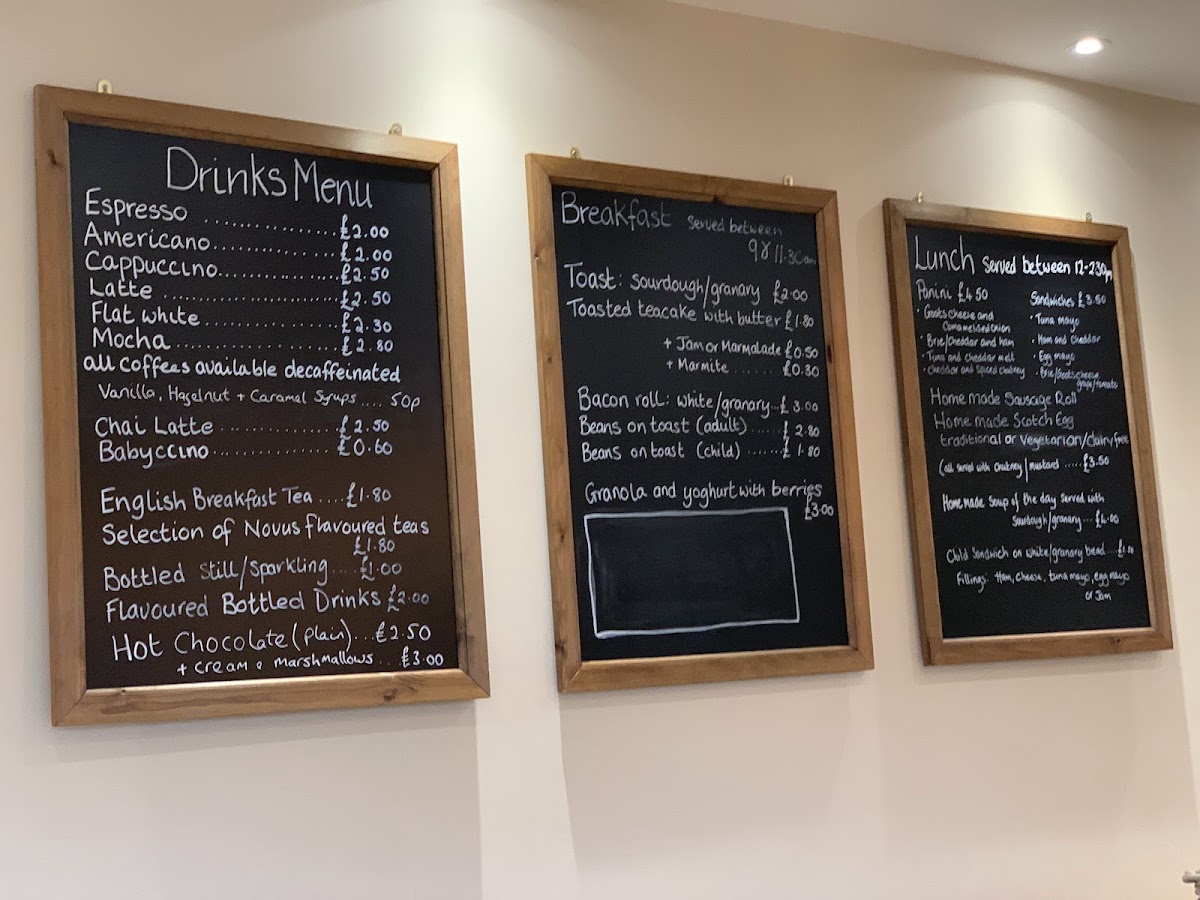 Drinks Menu
Espresso .............. £2.00
Americano.............. £2.00
Cappuccino............. £2.50
Latte .................. £2.50
Flat white.............. £2.30
Mocha ................. £2.80
all coffees available decaffeinated
Vanilla, Hazelnut + Caramel Syrups.... 50p
Chai Latte .............. £2.50
Babyccino.............. £0.60
English Breakfast Tea....£1.80
Selection of Novus flavoured teas
£1.80
Bottled Still/Sparkling....£1.00
Flavoured Bottled Drinks £2.00
Hot Chocolate (plain)...£2.50
+ cream & marshmallows...£3.00
Breakfast served between
9 & 11.30am
Toast: sourdough/granary £2.00
Toasted teacake with butter £1.80
+ Jam or Marmalade £0.50
+ Marmite ....... £0.30
Bacon roll: white/granary...£3.00
Beans on toast (adult)......£2.80
Beans on toast (child) .......£1.80
Granola and yoghurt with berries
£3.00
Lunch served between 12-230pm
Panini £4.50
· Goats cheese and
Caramelised onion
· Brie/cheddar and ham
· Tuna and cheddar melt
· cheddar and spiced chutney
Sandwiches £3.50
· Tuna mayo
· Ham and cheddar
· Egg mayo
· Brie/Goats cheese
grape/tomato
Home made Sausage Roll
Home made Scotch Egg
traditional or vegetarian/dairy free
(all served with chutney/mustard .....£3.50
Home made Soup of the day served with
Sourdough/granary...£4.00
Child Sandwich on white/granary bread ....
Fillings: Ham, cheese, tuna mayo, egg mayo
or Jam